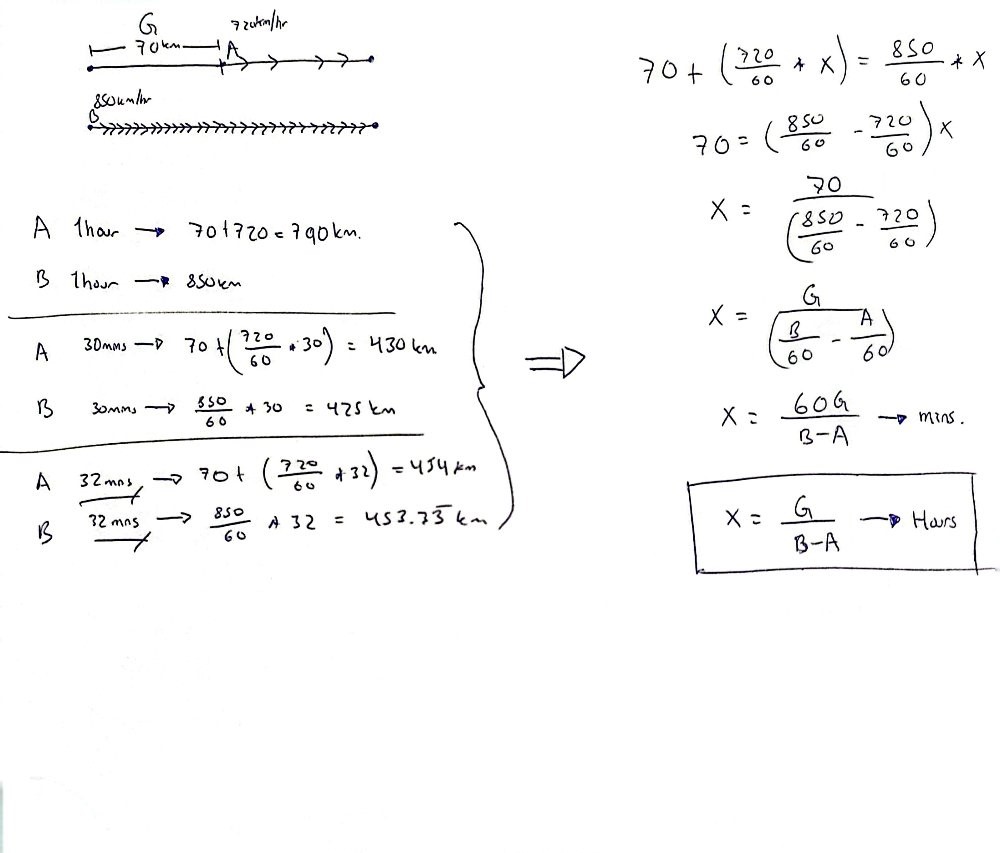 G
720km/hr
70km
A
850km/hr
B
A 1hour → 70+720=790km.
B 1hour → 850km
A 30mns → 70+(720/60 * 30) = 430km
B 30mns → 850/60 * 30 = 425km
A 32mns → 70+(720/60 * 32) = 454km
B 32mns → 850/60 * 32 = 453.33km
⇒
70+(720/60 * X) = 850/60 * X
70=(850/60 - 720/60)X
X = 70/(850/60 - 720/60)
X = G/(B/60 - A/60)
X = 60G/B-A → mins.
X = G/B-A → Hours